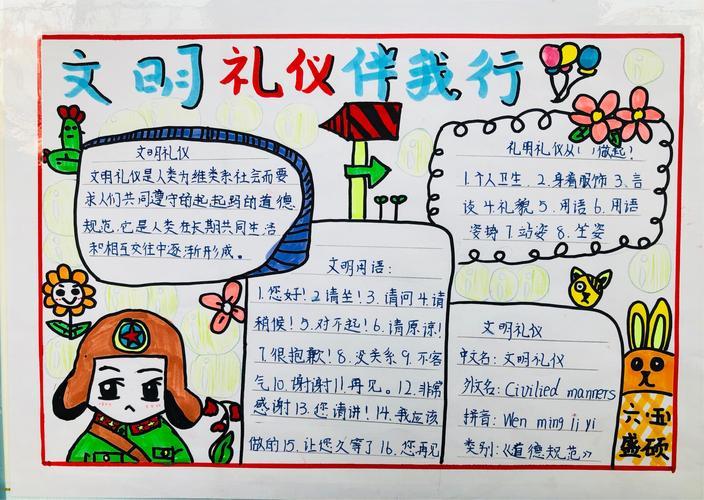 文明礼仪伴我行
文明礼仪
文明礼仪是人类为维类系社会而要
求人们共同遵守的起起码的道德
规范,它是人类在长期共同生活
和相互交往中逐渐形成。
礼明礼仪从 做起!
1.个人卫生.2.身着服饰3.言
谈4.礼貌5.用语6.用语
姿势7.站姿8.坐姿
文明用语:
1.您好!2请坐!3.请问4.请
稍候!5.对不起!6.请原谅!
7很抱歉!8.没关系9.不客
气10.谢谢11.再见。12.非常
感谢13.您请讲!14.我应该
做的15.让您久等了16.您再见
文明礼仪
中文名:文明礼仪
外文名:Civilied manners
拼音:Wen ming li yi
类别:《道德规范》
六·五
盛硕